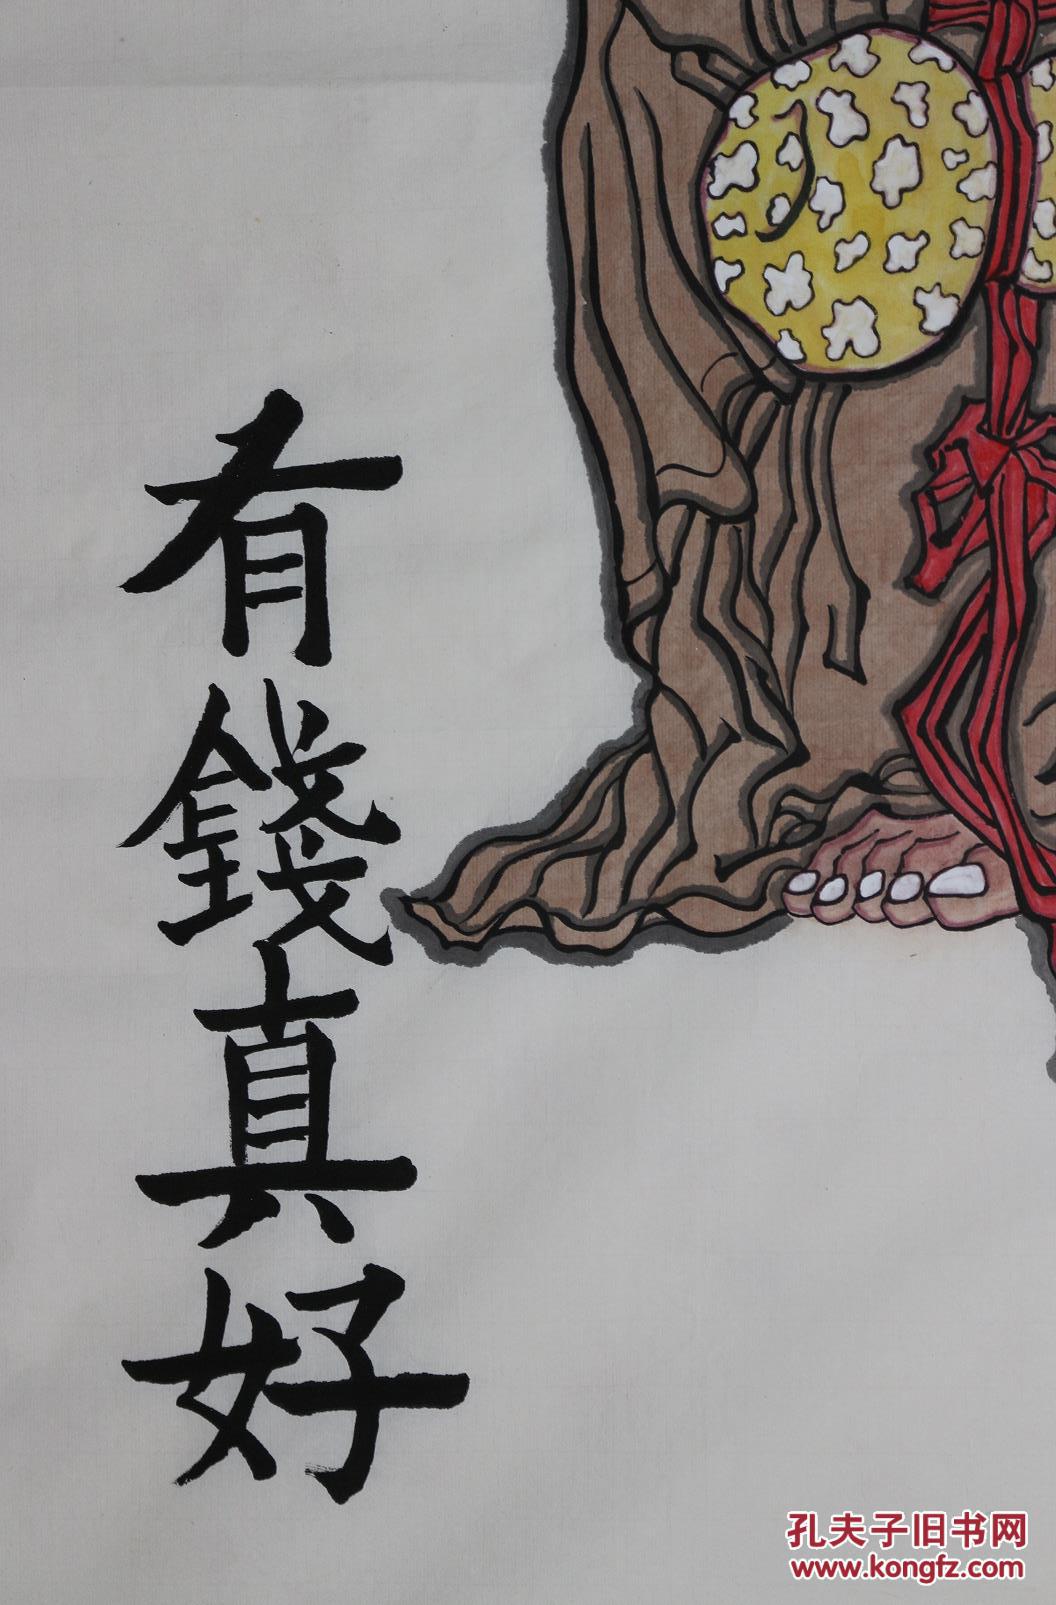 有錢真好
孔夫子旧书网
www.kongfz.com